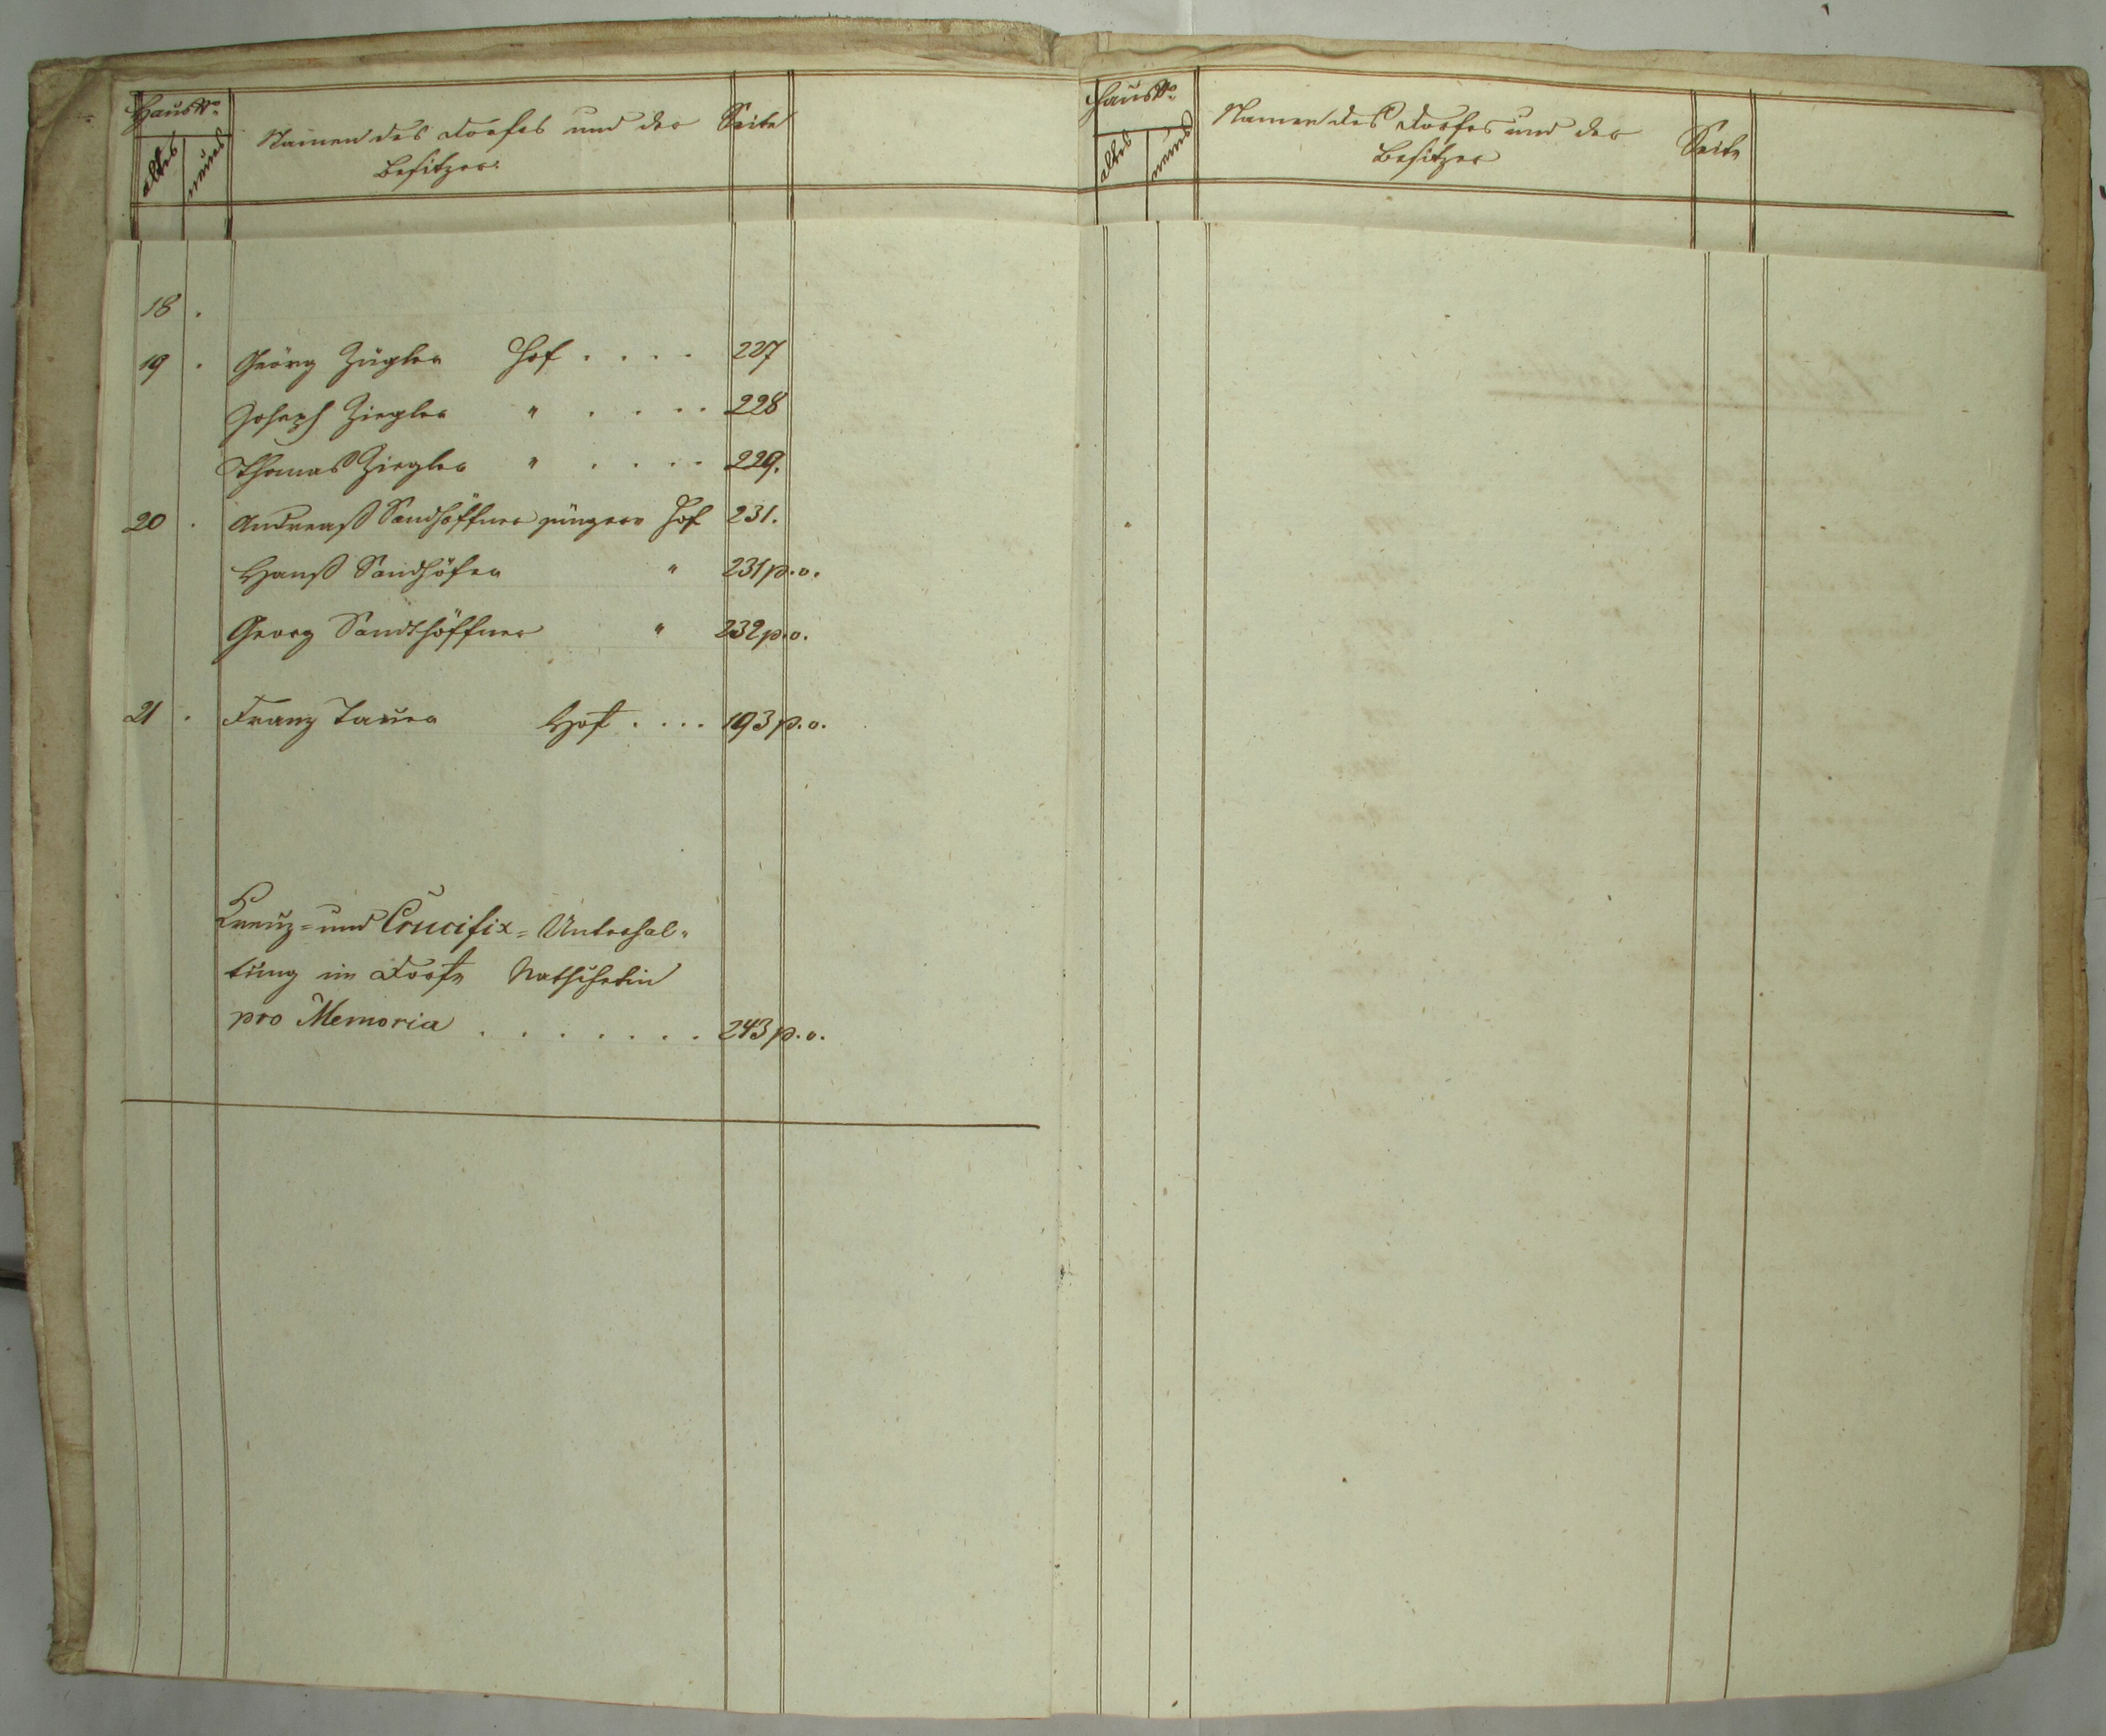 Haus No.
altes
neues
Namen des Dorfes und der
Besitzer.
Seite
18 .
19 . Geörg Zügler Hof . . . . 227
Joseph Ziegler " . . . . 228
Thomas Ziegler " . . . . 229.
20 . Andreaß Sandhöffner jüngere Hof 231.
Hanß Sandhöfer " 231 p.v.
Georg Sandhöffner " 232 p.v.
21 . Franz Tauer Hof . . . . 193 p.v.
Kreuz= und Crucifix= Unterhal=
tung im Dorfe Natschetin
pro Memoria . . . . . . . 243 p.v.
Haus No.
altes
neues
Namen des Dorfes und der
Besitzer
Seite